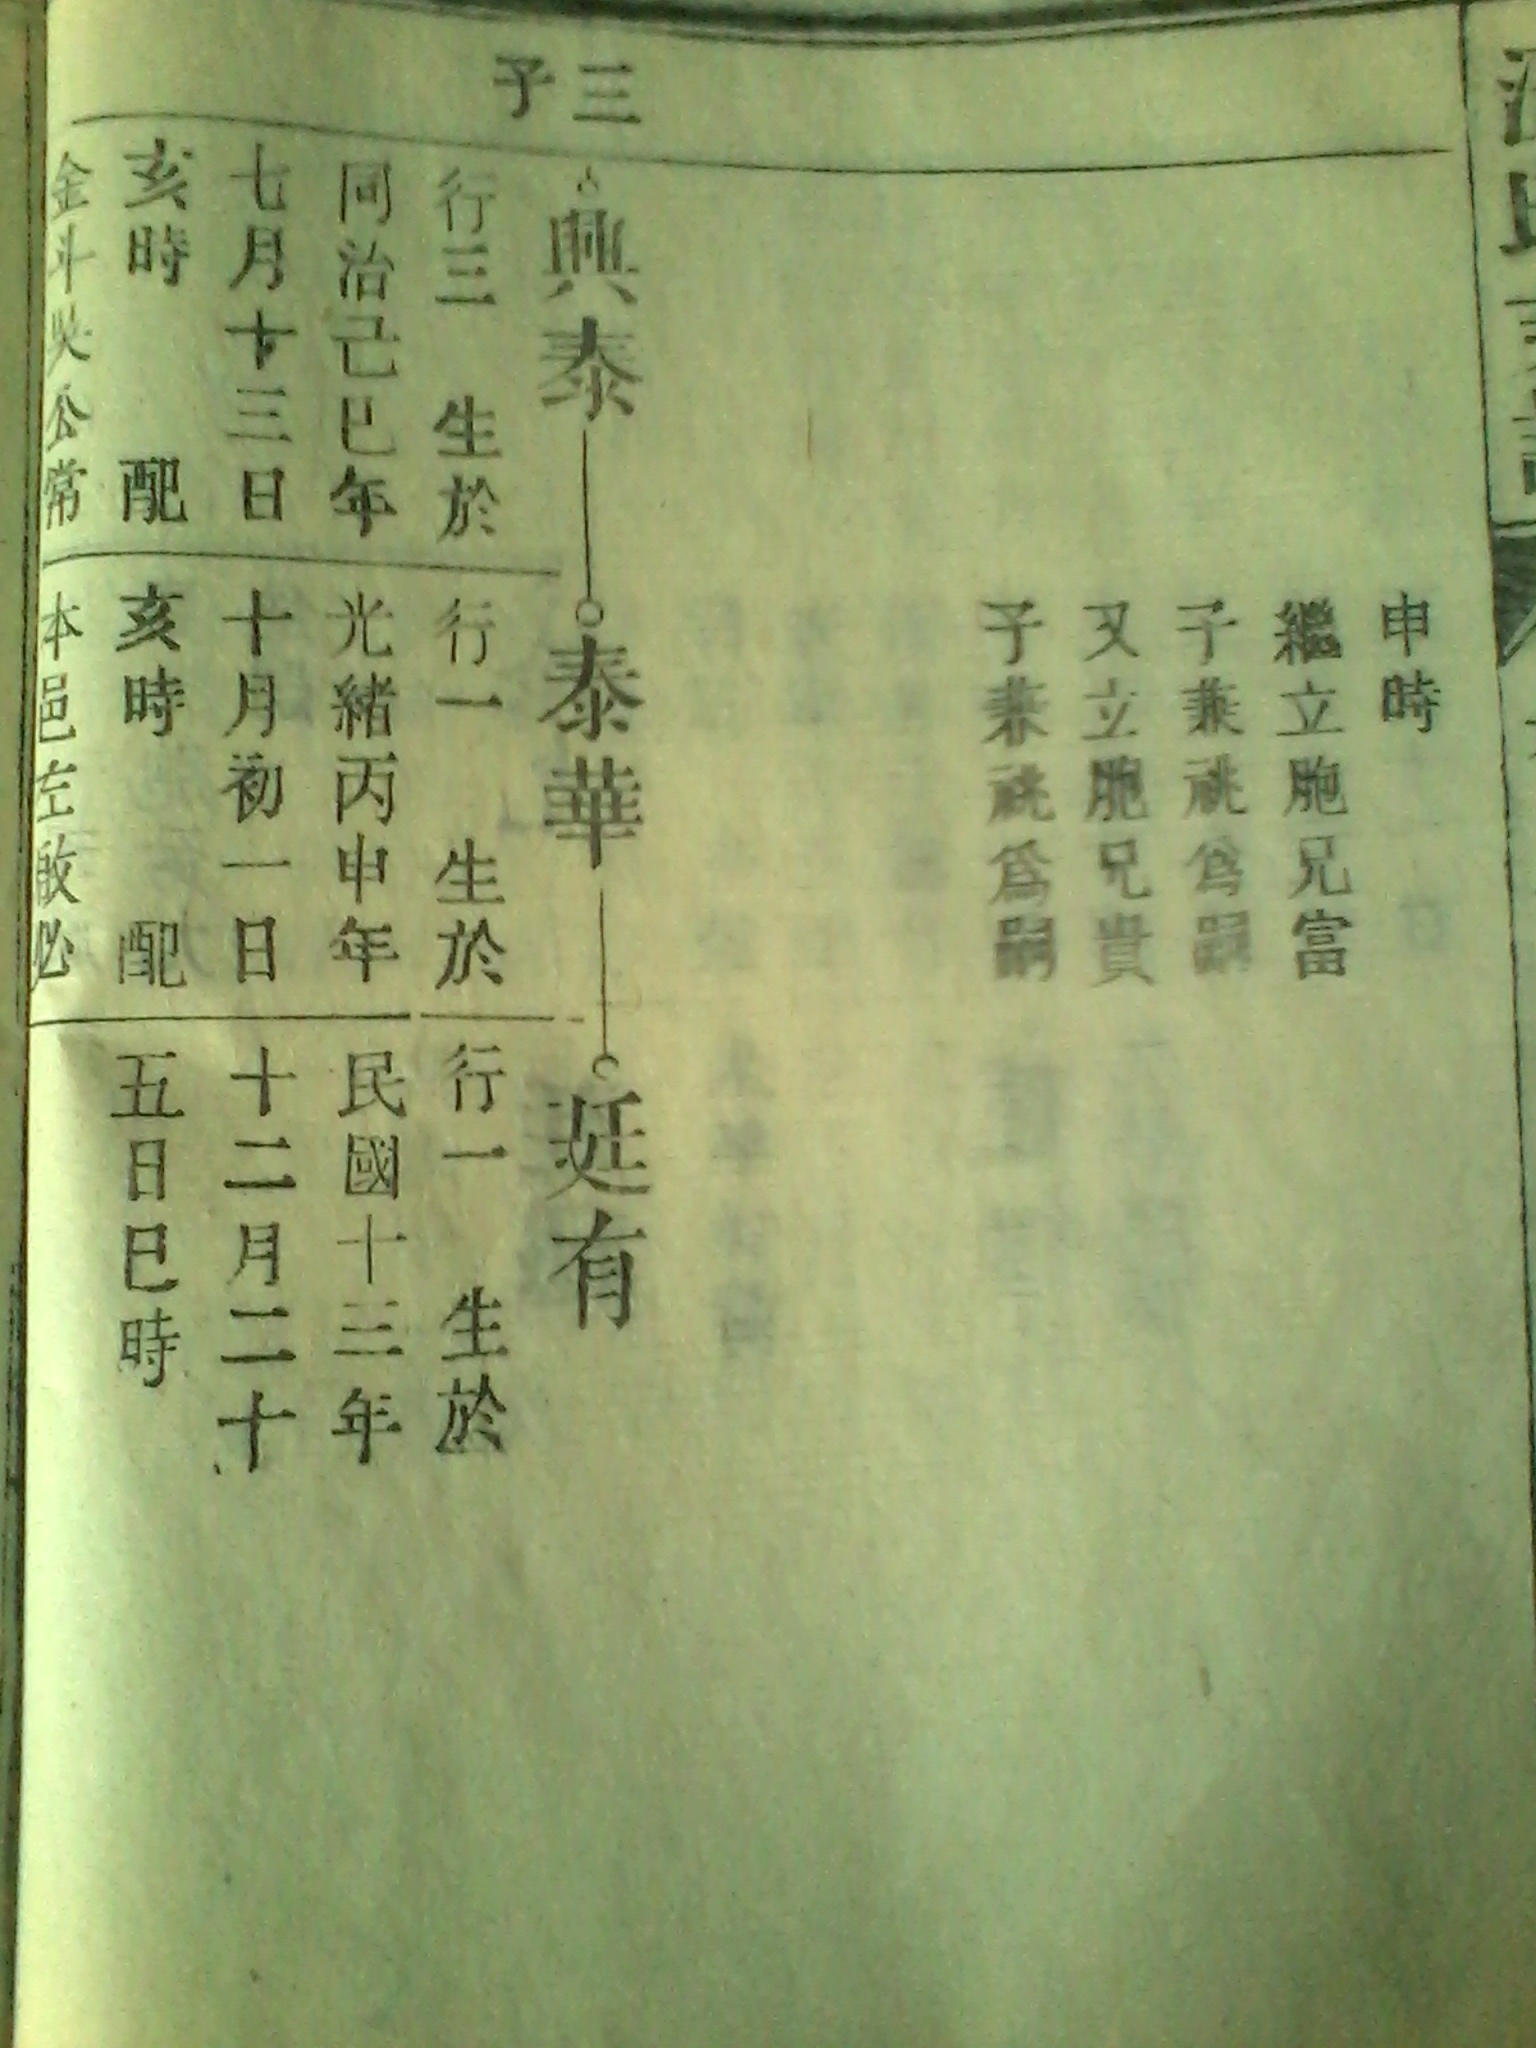 申時
繼立胞兄富
子兼祧爲嗣
又立胞兄貴
子兼祧爲嗣
三子
興泰
行三 生於
同治己巳年
七月十三日
亥時 配
金斗吳公常
泰華
行一 生於
光緒丙申年
十月初一日
亥時 配
本邑左啟必
廷有
行一 生於
民國十三年
十二月二十
五日巳時